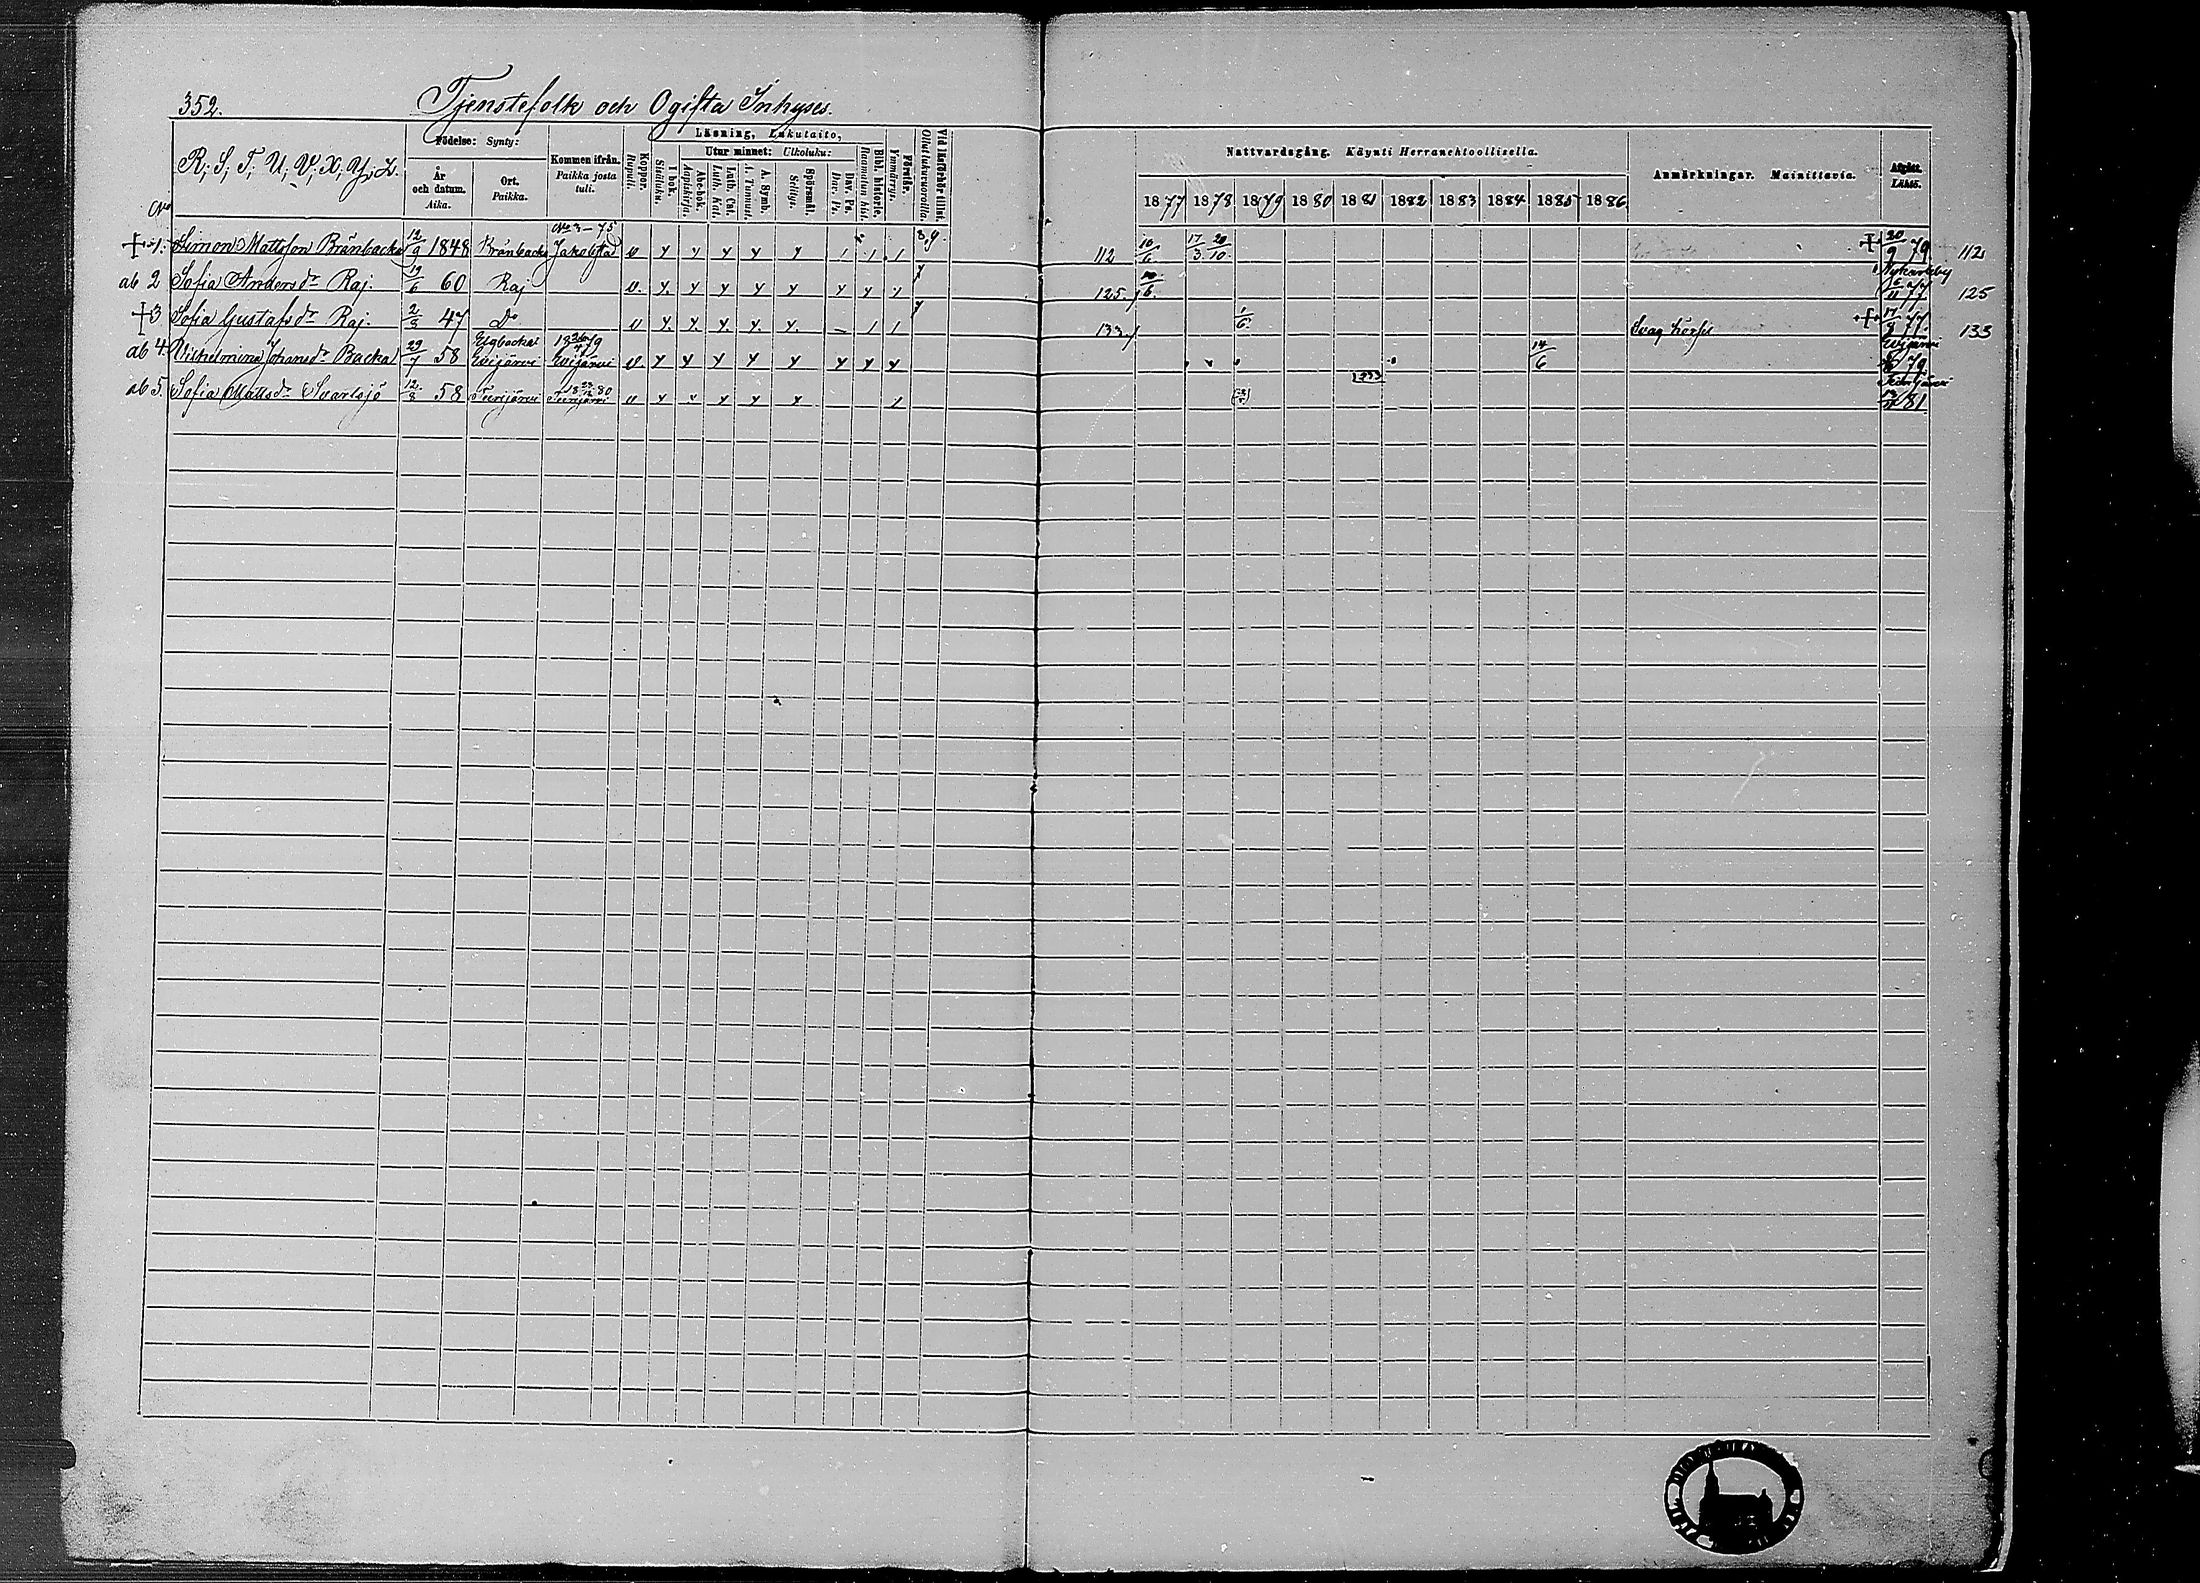 352. Tjenstefolk och Ogifta Inhyses.
R; S; T; U; V; X; Y; Z.
Födelse: Synty:
År och datum. Aika.
Ort. Paikka.
Kommen ifrån. Paikka josta tuli.
Koppor. Rupuli.
Läsning, Lukutaito,
I bok. Sisäluku.
Utur minnet: Ulkoluku:
Abc-bok. Aapiskirja.
Luth. Cat. Luth. Kat.
A. Symb. A. Tunnust.
Spörsmål. Selitys.
Dav. Ps. Dav. Ps.
Bibl. historie. Raamatun hist.
Förstår. Ymmärrys.
Vid läsförhör tillst. Ollut lukuvuorolla.
Nattvardsgång. Käynti Herranehtoollisella.
1877 1878 1879 1880 1881 1882 1883 1884 1885 1886
Anmärkningar. Mainittavia.
Afgått. Lähtö.
No
No 3 - 75
1. Simon Mattsson Brännbacka 12/9 1848 Brännbacka Jakobstad v y y y y y 1 1 1 8,9. 112 10/6 17/3 20/10 20/9 79 112
Nykarleby
ab 2 Sofia Andersdr Raj. 19/6 60 Raj v. y. y y y y y y y 7 125. 10/6. 6/11 77 125
3 Sofia Gustafsdr Raj. 2/8 47 Do v y. y. y. y. y. – 1 1 7 133 1/6. Svag hörsel 17/8 77. 133
Evijärvi
ab 4. Vilhelmina Johansdr Backa 29/7 58 Evijärvi Evijärvi v. y y y y y y y y 14/6 79
ab 5. Sofia Mattsdr Svartsjö 12/8 58 Terijärvi Terijärvi 80 v y y y y y y 81